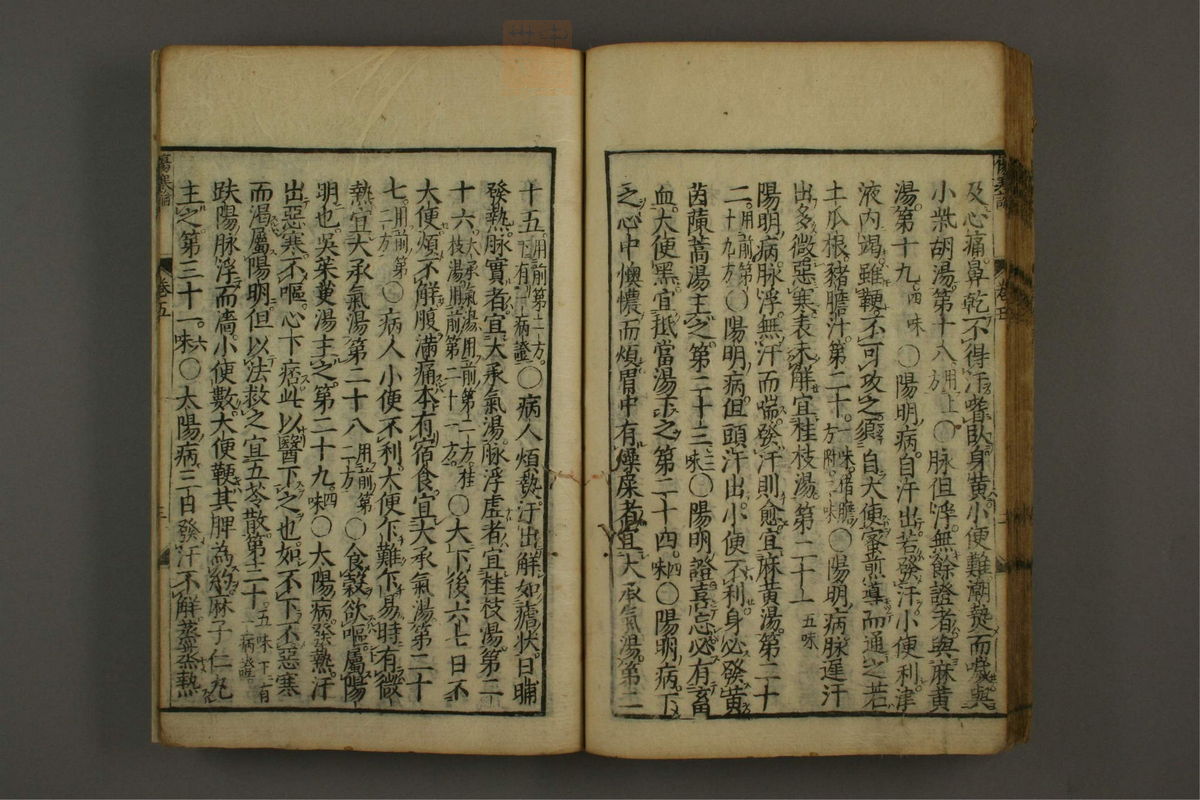 及心痛鼻乾不得汗嗜臥身黃小便難潮熱而噦與
小柴胡湯第十八 用上方○脉但浮無餘證者與麻黃
湯第十九 四味○陽明病自汗出若發汗小便利津
液內竭雖鞕不可攻之須自大便蜜煎導而通之若
土瓜根豬膽汁第二十 一味豬膽方附二味○陽明病脉遲汗
出多微惡寒表未解宜桂枝湯第二十一 五味
陽明病脉浮無汗而喘發汗則愈宜麻黃湯第二十
二 用前第十九方○陽明病但頭汗出小便不利身必發黃
茵蔯蒿湯主之第二十三 三味○陽明證喜忘必有畜
血大便黑宜抵當湯主之第二十四 四味○陽明病下
之心中懊憹而煩胃中有燥屎者宜大承氣湯第二
十五 用前第二方下有一病證○病人煩熱汗出解如瘧狀日晡
發熱脉實者宜大承氣湯脉浮虛者宜桂枝湯第二
十六 大承氣湯用前第二方桂枝湯用前第二十一方○大下後六七日不
大便煩不解腹滿痛本有宿食宜大承氣湯第二十
七 用前第二方○病人小便不利大便乍難乍易時有微
熱宜大承氣湯第二十八 用前第二方○食穀欲嘔屬陽
明也吳茱萸湯主之第二十九 四味○太陽病發熱汗
出惡寒不嘔心下痞此以醫下之也如不下不惡寒
而渴屬陽明但以法救之宜五苓散第三十 五味下有一病證
趺陽脉浮而濇小便數大便鞕其脾為約麻子仁丸
主之第三十一 六味○太陽病三日發汗不解蒸蒸熱
傷寒論 卷五 三